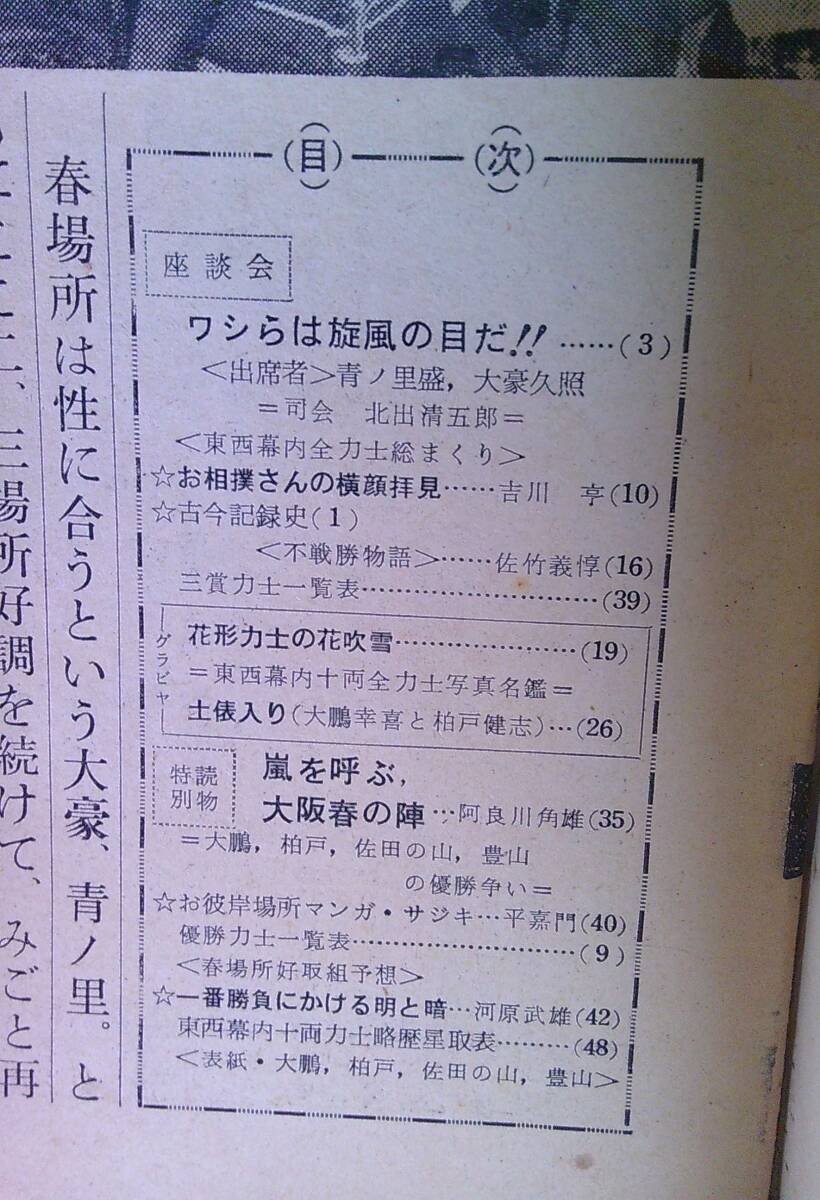 (目)(次)
座談会
ワシらは旋風の目だ!!……(3)
<出席者>青ノ里盛，大豪久照
＝司会　北出清五郎＝
<東西幕内全力士総まくり>
☆お相撲さんの横顔拝見……吉川　亨(10)
☆古今記録史(1)
<不戦勝物語>……佐竹義惇(16)
三賞力士一覧表…………………………(39)
グラビヤ
花形力士の花吹雪……………………(19)
＝東西幕内十両全力士写真名鑑＝
土俵入り(大鵬幸喜と柏戸健志)…(26)
特別読物
嵐を呼ぶ，
大阪春の陣…阿良川角雄(35)
＝大鵬，柏戸，佐田の山，豊山
の優勝争い＝
☆お彼岸場所マンガ・サジキ…平嘉門(40)
優勝力士一覧表…………………………(9)
<春場所好取組予想>
☆一番勝負にかける明と暗…河原武雄(42)
東西幕内十両力士略歴星取表………(48)
<表紙・大鵬，柏戸，佐田の山，豊山>
春場所は性に合うという大豪、青ノ里。と
二、三場所好調を続けて、みごと再